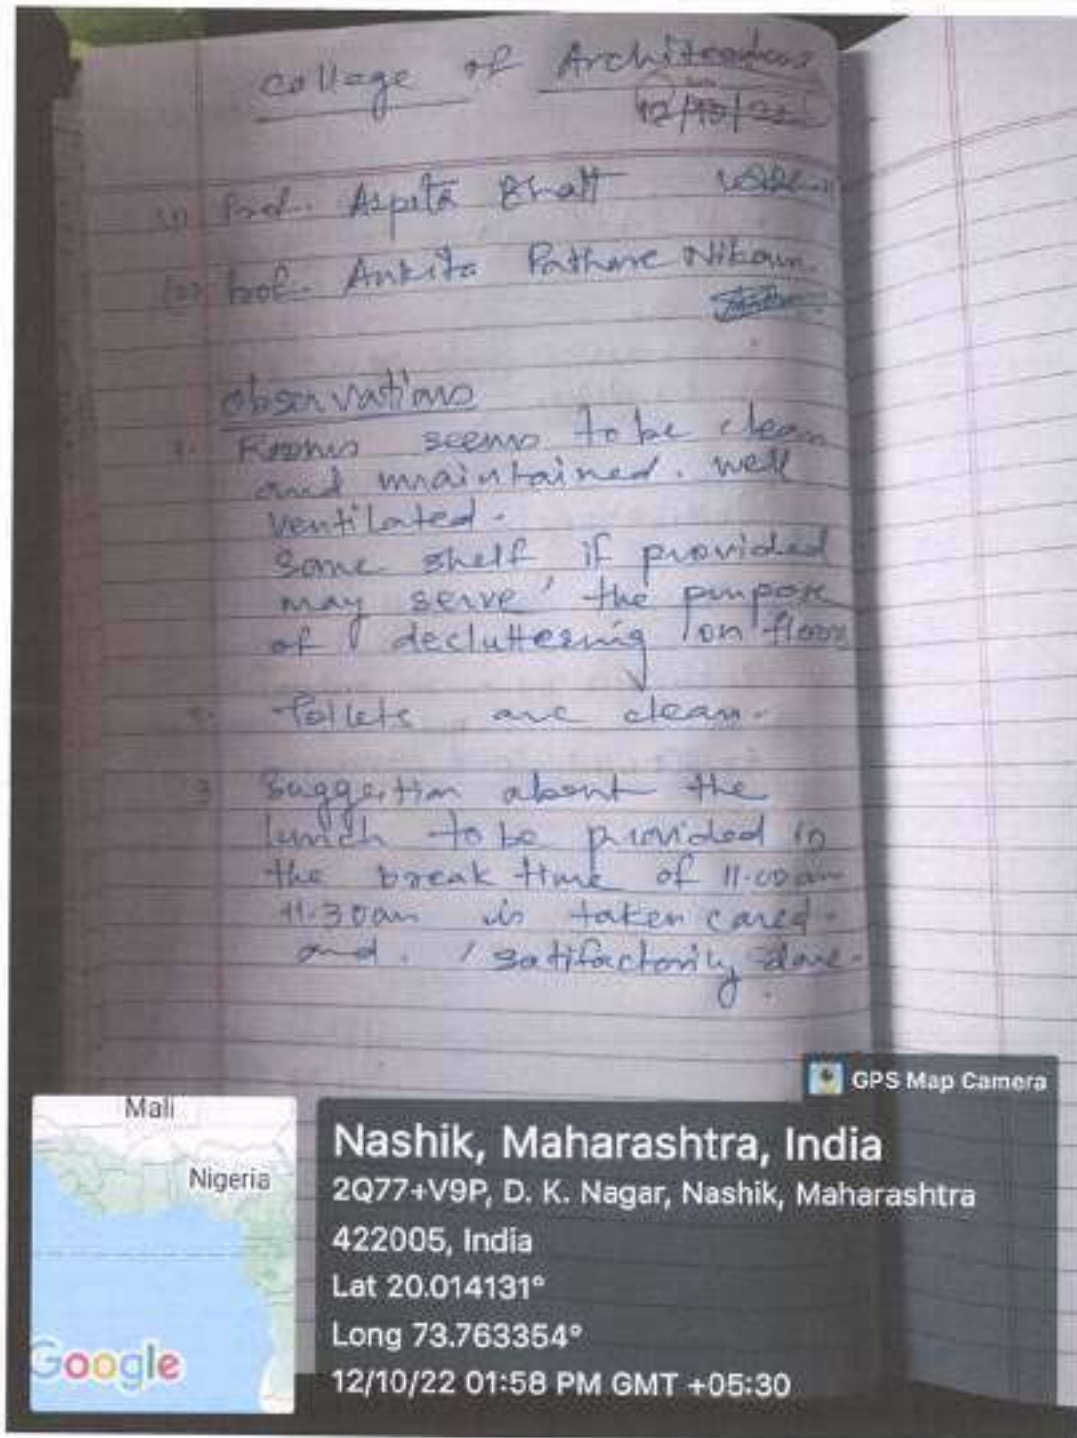 College of Architecture
12/10/22
(1) Prof. Arpita Bhatt
(2) Prof. Ankita Pathare Nikam
Observations
1. Rooms seems to be clean
and maintained. well
ventilated.
Some shelf if provided
may serve the purpose
of decluttering on floor
2. Toilets are clean.
3 Suggestion about the
lunch to be provided in
the break time of 11.00am
11.30am is taken cared.
and. satifactorily done.
GPS Map Camera
Mali
Nigeria
Google
Nashik, Maharashtra, India
2Q77+V9P, D. K. Nagar, Nashik, Maharashtra
422005, India
Lat 20.014131°
Long 73.763354°
12/10/22 01:58 PM GMT +05:30